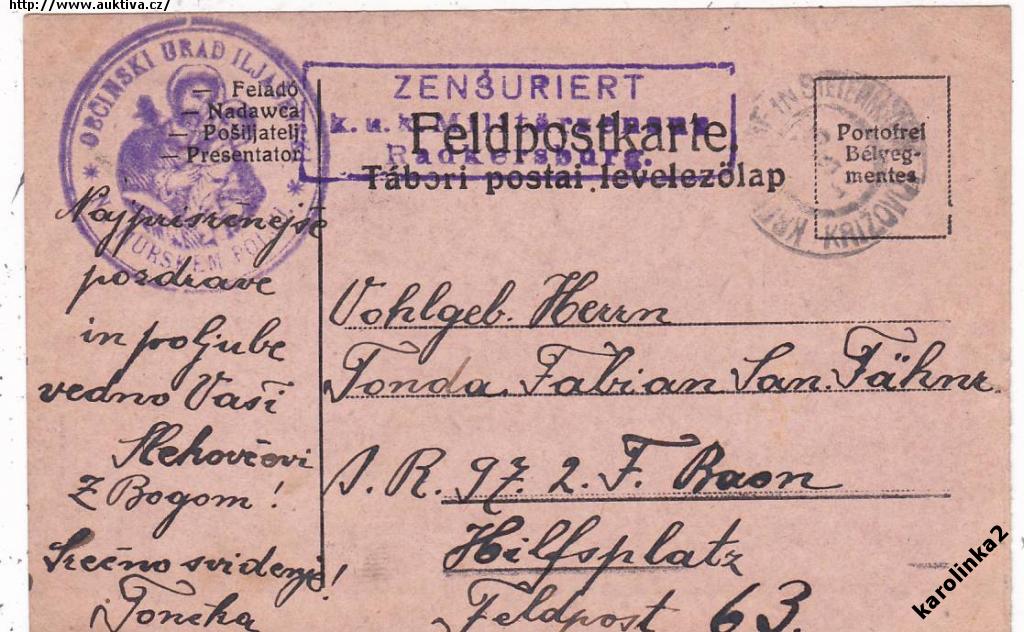 http://www.auktiva.cz/
OBČINSKI URAD ILJA
MURSKEM POLJU
— Feladó
— Nadawca
— Pošiljatelj
— Presentator
ZENSURIERT
k. u. k. Militärzensur
Radkersburg.
Feldpostkarte.
Tábori postai levelezőlap
Portofrei
Bélyeg-
mentes
IN STEIERMARK
KRIŽOVC
Najprisrčnejše
pozdrave
in poljube
vedno Vaši
Slehovčovi
Z Bogom!
Srečno svidenje!
Tončka
Vohlgeb. Herrn
Tonda Fabian San. Fähnr.
I. R. 97. 2. F. Baon
Hilfsplatz
Feldpost 63.
karolinka2